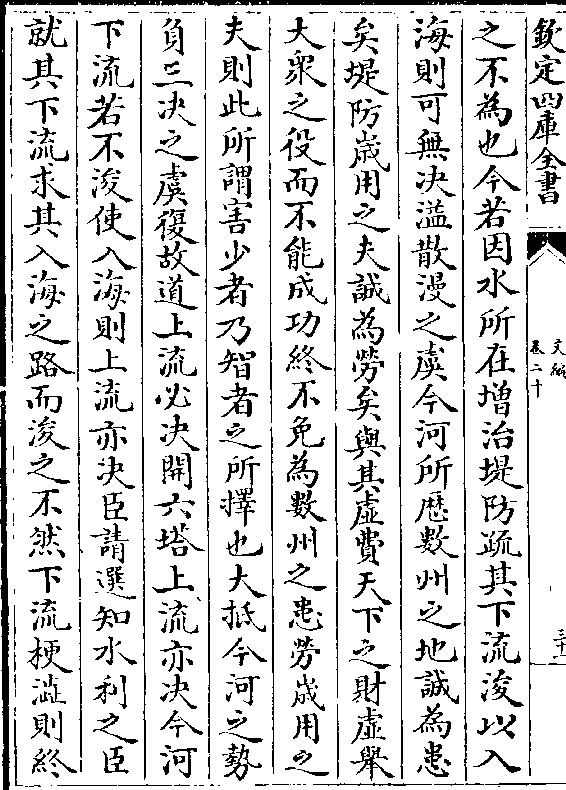 欽定四庫全書
文編
卷二十
三十一
之不為也今若因水所在增治堤防疏其下流浚以入
海則可無决溢散漫之虞今河所歴數州之地誠為患
矣堤防嵗用之夫誠為勞矣與其虛費天下之財虛舉
大衆之役而不能成功終不免為數州之患勞嵗用之
夫則此所謂害少者乃智者之所擇也大抵今河之勢
負三决之虞復故道上流必决開六塔上流亦决今河
下流若不浚使入海則上流亦决臣請選知水利之臣
就其下流求其入海之路而浚之不然下流梗澁則終